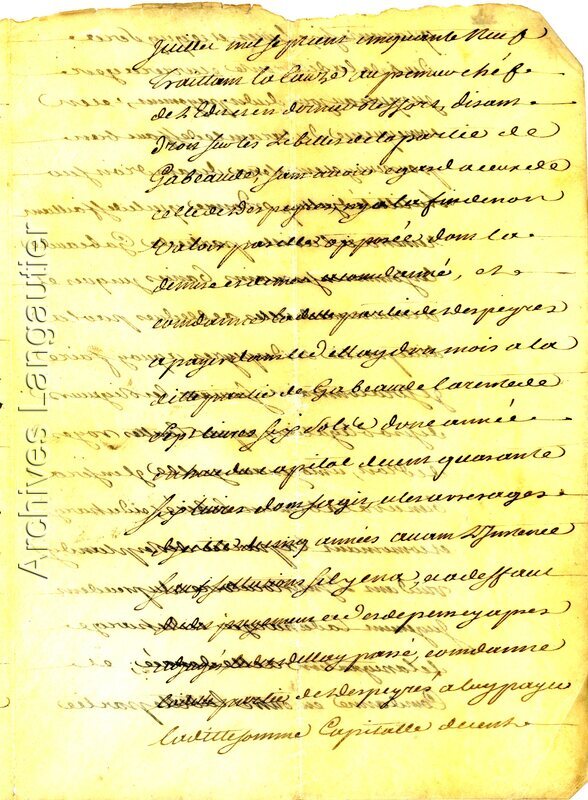 Juillet mil sept cent cinquante Neuf
Traittant la Cauze au premier chéf
de L'Edit et en dernier Ressort, disant
Droit sur les Libelles de la partie de
Gabeaude, sans avoir egard a ceux de
celle de Despeyres, ny a la fin de non
Valoir par elle opposée dont la
demise et demet a condamné, et
condamne la ditte partie de Despeyres
a payer dans le delay d'un mois a la
ditte partie de Gabeaude la rente de
Sept livres Six Sols d'une année
du capital de cent quarante
Sept livres dont s'agit, et les arrerages
cinq années avant L'Instance
Sauf Sil y en a, et a deffaut
et apres
delay passé, condamne
la ditte partie de Despeyres a luy payer
la ditte somme Capitalle de cent
Archives Langautier